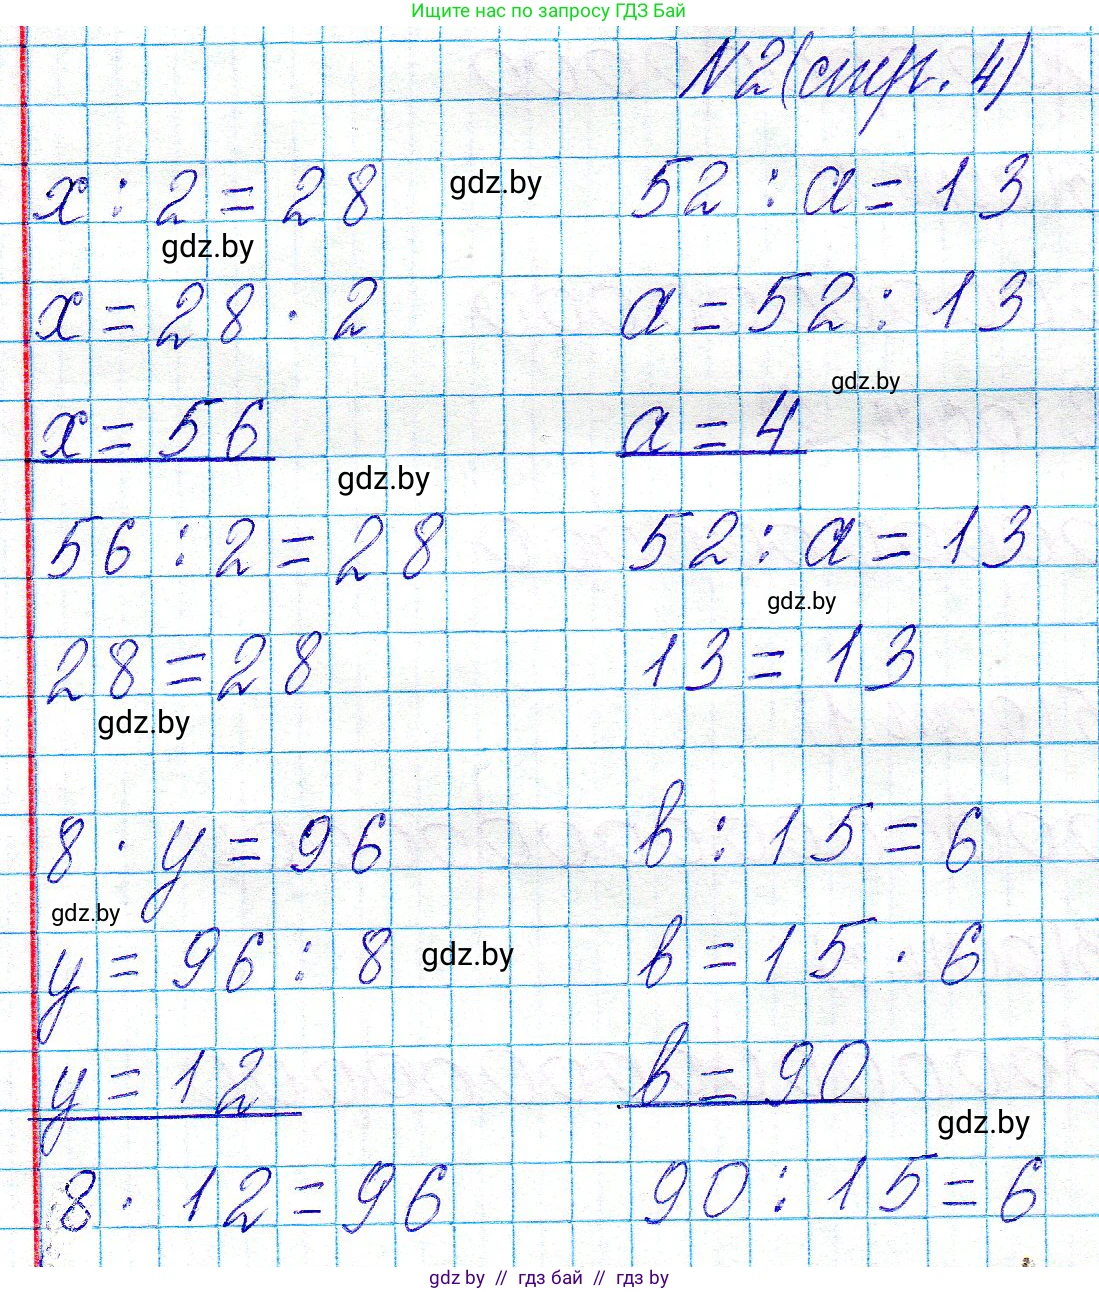 Ищите нас по запросу ГДЗ Бай
N2(стр. 4)
x : 2 = 28
gdz.by
52 : a = 13
gdz.by
x = 28 · 2
a = 52 : 13
gdz.by
x = 56
a = 4
gdz.by
56 : 2 = 28
52 : a = 13
gdz.by
28 = 28
13 = 13
gdz.by
8 · y = 96
b : 15 = 6
gdz.by
y = 96 : 8
gdz.by
b = 15 · 6
y = 12
b = 90
gdz.by
8 · 12 = 96
90 : 15 = 6
gdz by // гдз бай // гдз by